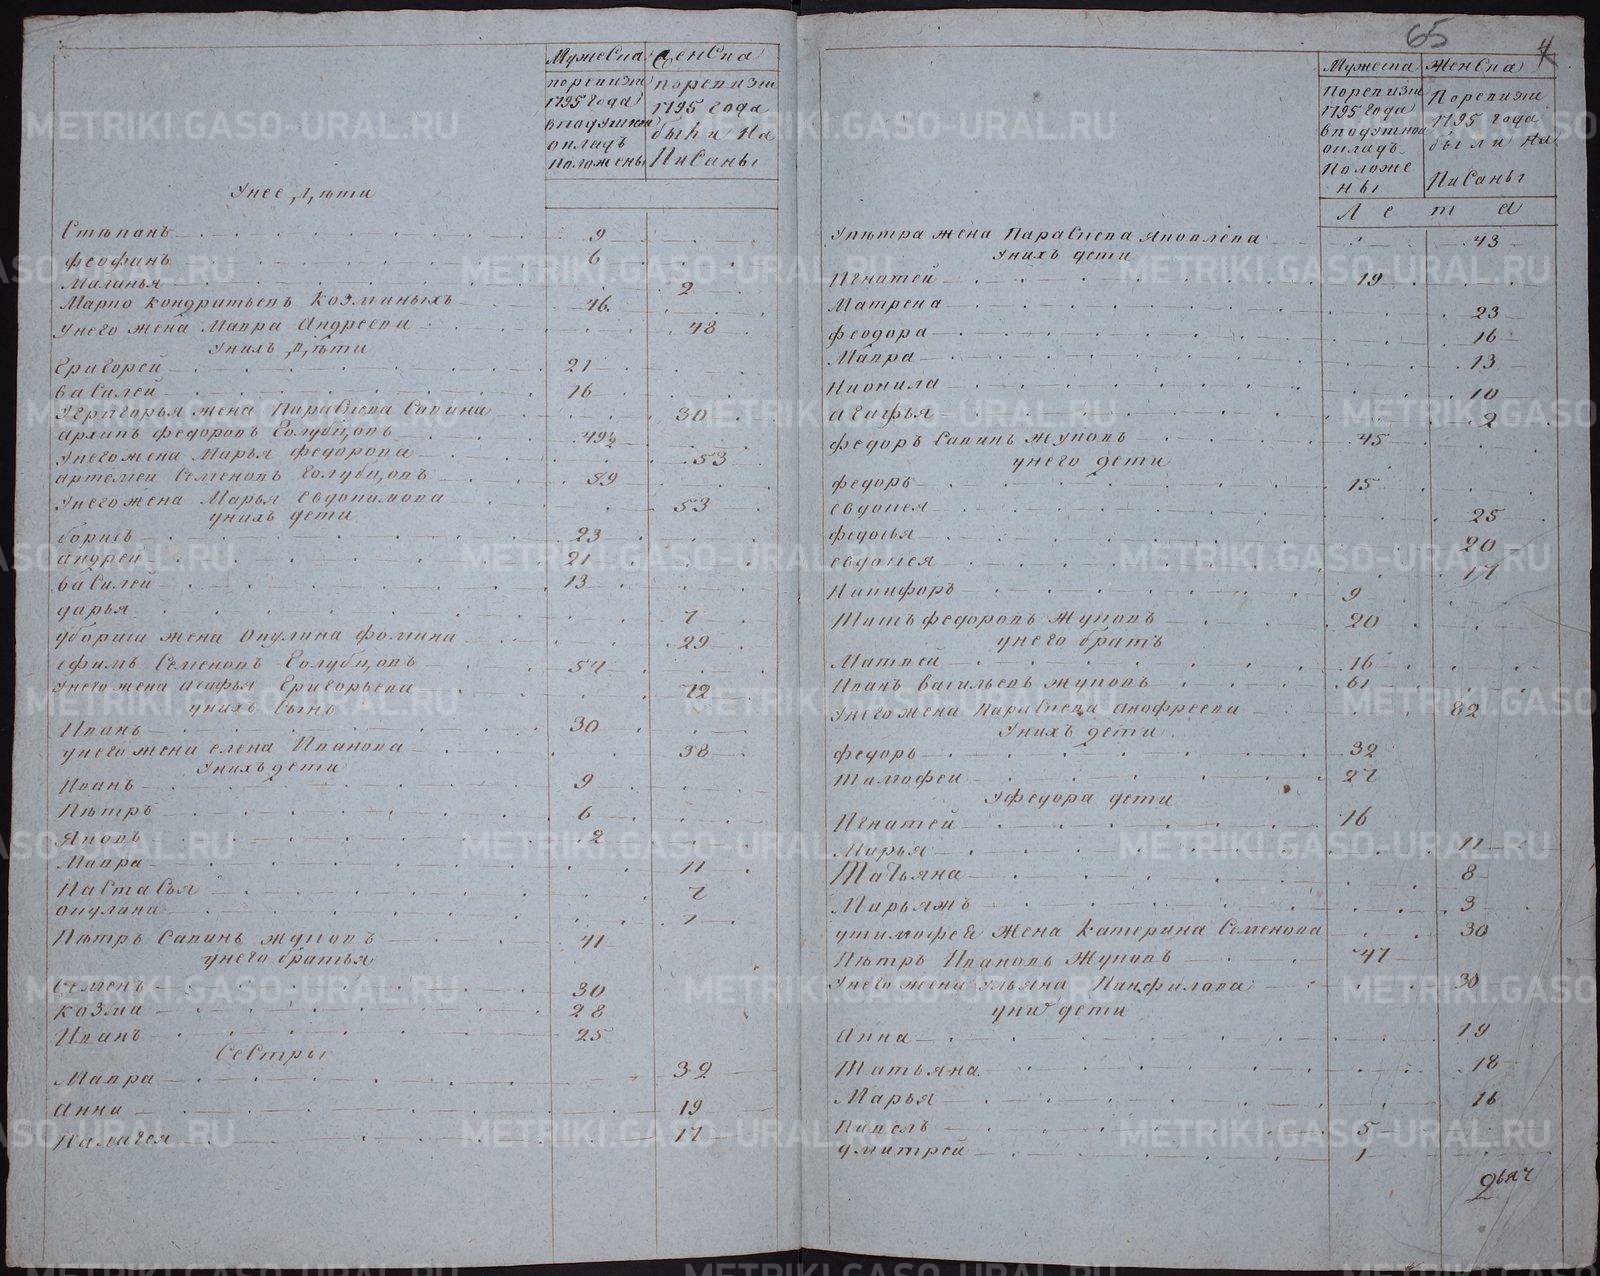 Мужеска
Женска
поревизіи 1795 года в подушной окладъ положены
поревизіи 1795 года были написаны
У нее дѣти
Стѣпанъ 9
Феофанъ 6
Маланья 2
Марко Кондратьевъ Козминыхъ 46
У него жена Мавра Андреева 48
У нихъ дѣти
Григорей 21
Василей 16
У Григорья жена Парасковья Савина 30
Архипъ Федоровъ Голубцовъ 49½
У него жена Марья Федорова 53
Артемеи Семеновъ Голубцовъ 59
У него жена Марья Евдокимова 53
у нихъ дети
Борисъ 23
андрей 21
Василей 13
дарья 7
у бориса жена Окулина Фомина 29
ефимъ Семеновъ Голубцовъ 57
У него жена Агафья Григорьева 72
у нихъ Сынъ
Иванъ 30
у него жена елена Иванова 38
У нихъ дети
Иванъ 9
Пѣтръ 6
Яковъ 2
Мавра 11
Настасья 7
окулина 1
Пѣтръ Савинъ Жуковъ 41
у него братья
Семенъ 30
козма 28
Иванъ 25
Сестры
Мавра 32
Анна 19
17
65
4
Мужеска
Женска
Поревизіи 1795 года в подушной окладъ Положены
Поревизіи 1795 года были На Писаны
Лета
У пѣтра жена Парасковья Яковлева 43
У нихъ дети
Игнатей 19
Матрена 23
Феодора 16
Мавра 13
Неонила 10
агафья 2
Федоръ Савинъ Жуковъ 45
у него дети
Федоръ 15
евдокея 25
Федосья 20
евдокея 17
Никифоръ 9
Титъ Федоровъ Жуковъ 20
у него братъ
Матвей 16
Иванъ Васильевъ Жуковъ 61
У него жена Парасковья Анофреева 62
У нихъ дети
Федоръ 32
Тимофеи 27
У Федора дети
Игнатей 16
Марья 11
Татьяна 8
Марья жъ 3
у тимофея Жена Катерина Семенова 30
Пѣтръ Ивановъ Жуковъ 47
У него жена Ульяна Панфилова 30
у них дети
Анна 19
Татьяна 18
Марья 16
Павелъ 5
дмитрей 1
METRIKI.GASO-URAL.RU